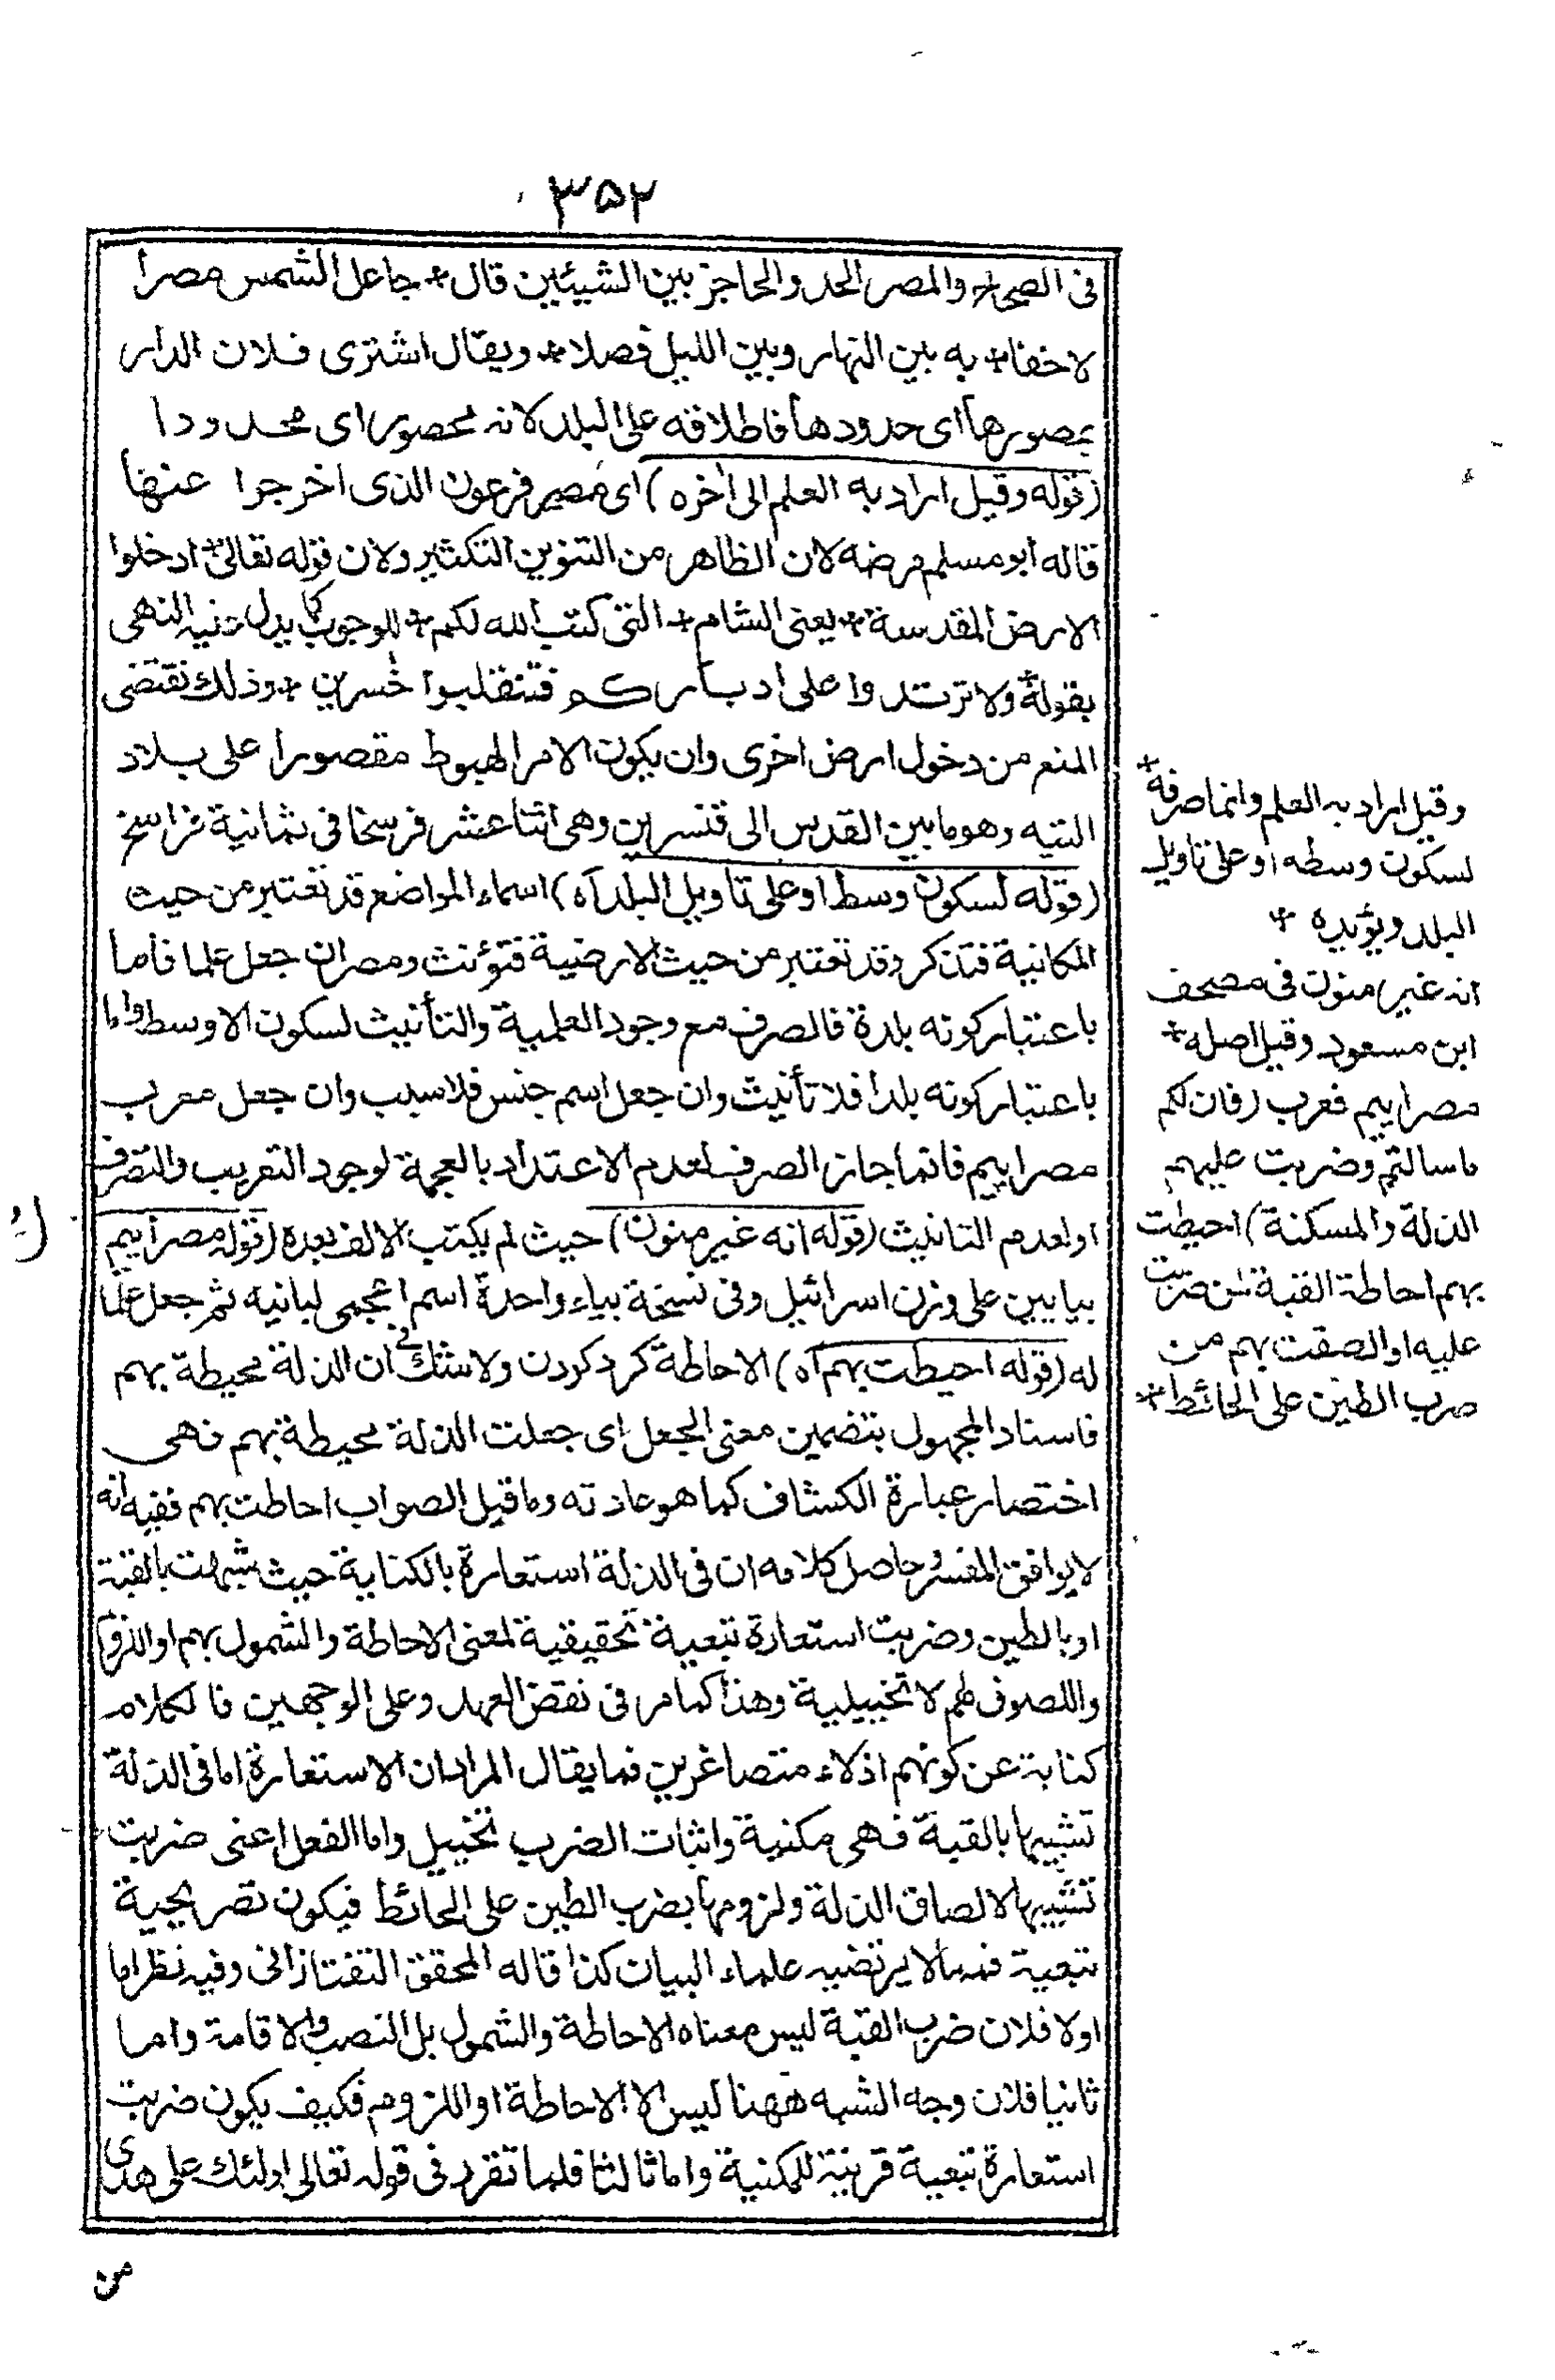 ٣٥٢
فى الصحاح والمصر الحد والحاجز بين الشيئين قال * جاعل الشمس مصرا
لا خفا * به بين النهار وبين الليل فصلا * ويقال اشترى فلان الدار
بمصورها اى حدودها فاطلاقه على البلد لانه ممصور اى محدودا
(قوله وقيل اراد به العلم الى اخره) اى مصر فرعون الذى اخرجوا عنها
قاله ابو مسلم مرضه لان الظاهر من التنوين التنكير ولان قوله تعالى * ادخلوا
الارض المقدسة * يعنى الشام * التى كتب الله لكم * للوجوب كما يدل عليه النهى
بقوله * ولا ترتدوا على ادباركم فتنقلبوا خسرين * وذلك تقتضى
المنع من دخول ارض اخرى وان يكون الامر الهبوط مقصورا على بلاد
التيه وهو ما بين القدس الى قنسرين وهى اثنا عشر فرسخا فى ثمانية فراسخ
(قوله لسكون وسطه او على تاويل البلد آه) اسماء المواضع قد تعتبر من حيث
المكانية فتذكر وقد تعتبر من حيث الارضية فتؤنث ومصر ان جعل علما فاما
باعتبار كونه بلدة فالصرف مع وجود العلمية والتأنيث لسكون الاوسط واما
باعتبار كونه بلدا فلا تأنيث وان جعل اسم جنس فلا سبب وان جعل معرب
مصراييم فانما جاز الصرف لعدم الاعتداد بالعجمة لوجود التعريب والتصرف
او لعدم التانيث (قوله انه غير منون) حيث لم يكتب الالف بعده (قوله مصراييم
بيايين على وزن اسرائيل وفى نسخة بياء واحدة اسم اعجمى لبانيه ثم جعل علما
له (قوله احيطت بهم آه) الاحاطة كرد كردن ولا شك فى ان الذلة محيطة بهم
فاسناد المجهول بتضمين معنى الجعل اى جعلت الذلة محيطة بهم فهى
اختصار عبارة الكشاف كما هو عادته وما قيل الصواب احاطت بهم ففيه انه
لا يوافق المفسر حاصل كلامه ان فى الذلة استعارة بالكناية حيث شبهت بالقبة
او بالطين وضربت استعارة تبعية تحقيقية لمعنى الاحاطة والشمول بهم او اللزوم
واللصوق بهم لا تخييلية وهذا كما مر فى نقض العهد وعلى الوجهين فالكلام
كناية عن كونهم اذلاء متصاغرين فما يقال المراد ان الاستعارة اما فى الذلة
تشبيها بالقبة فهى مكنية واثبات الضرب تخييل واما الفعل اعنى ضربت
تشبيها لالصاق الذلة ولزومها بضرب الطين على الحائط فيكون تصريحية
تبعية فمما لا يرتضيه علماء البيان كذا قاله المحقق التفتازانى وفيه نظر اما
اولا فلان ضرب القبة ليس معناه الاحاطة والشمول بل النصب والاقامة واما
ثانيا فلان وجه الشبه ههنا ليس الا الاحاطة او اللزوم فكيف يكون ضربت
استعارة تبعية قرينة للمكنية واما ثالثا فلما تقرر فى قوله تعالى اولئك على هدى
من
وقيل اراد به العلم وانما صرفه *
لسكون وسطه او على تاويل
البلد ويؤيده *
انه غير منون فى مصحف
ابن مسعود وقيل اصله *
مصراييم فعرب (فان لكم
ما سالتم وضربت عليهم
الذلة والمسكنة) احيطت
بهم احاطة القبة بمن ضربت
عليه او الصقت بهم من
ضرب الطين على الحائط *